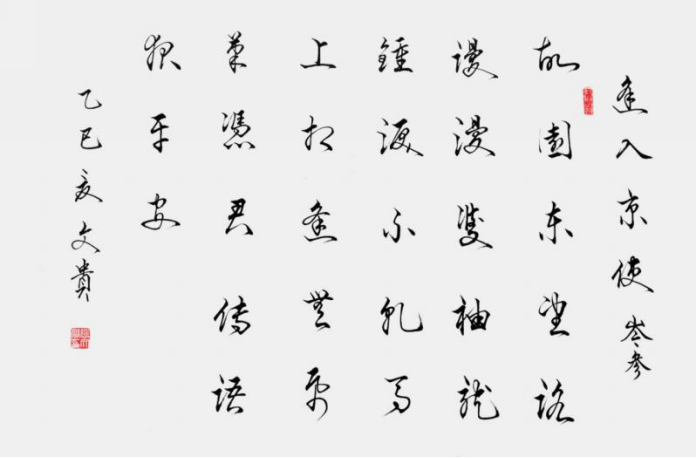 逢入京使 岑參
故園東望路
漫漫雙袖龍
鍾淚不乾馬
上相逢無紙
筆憑君傳語
報平安
乙巳夏文貴